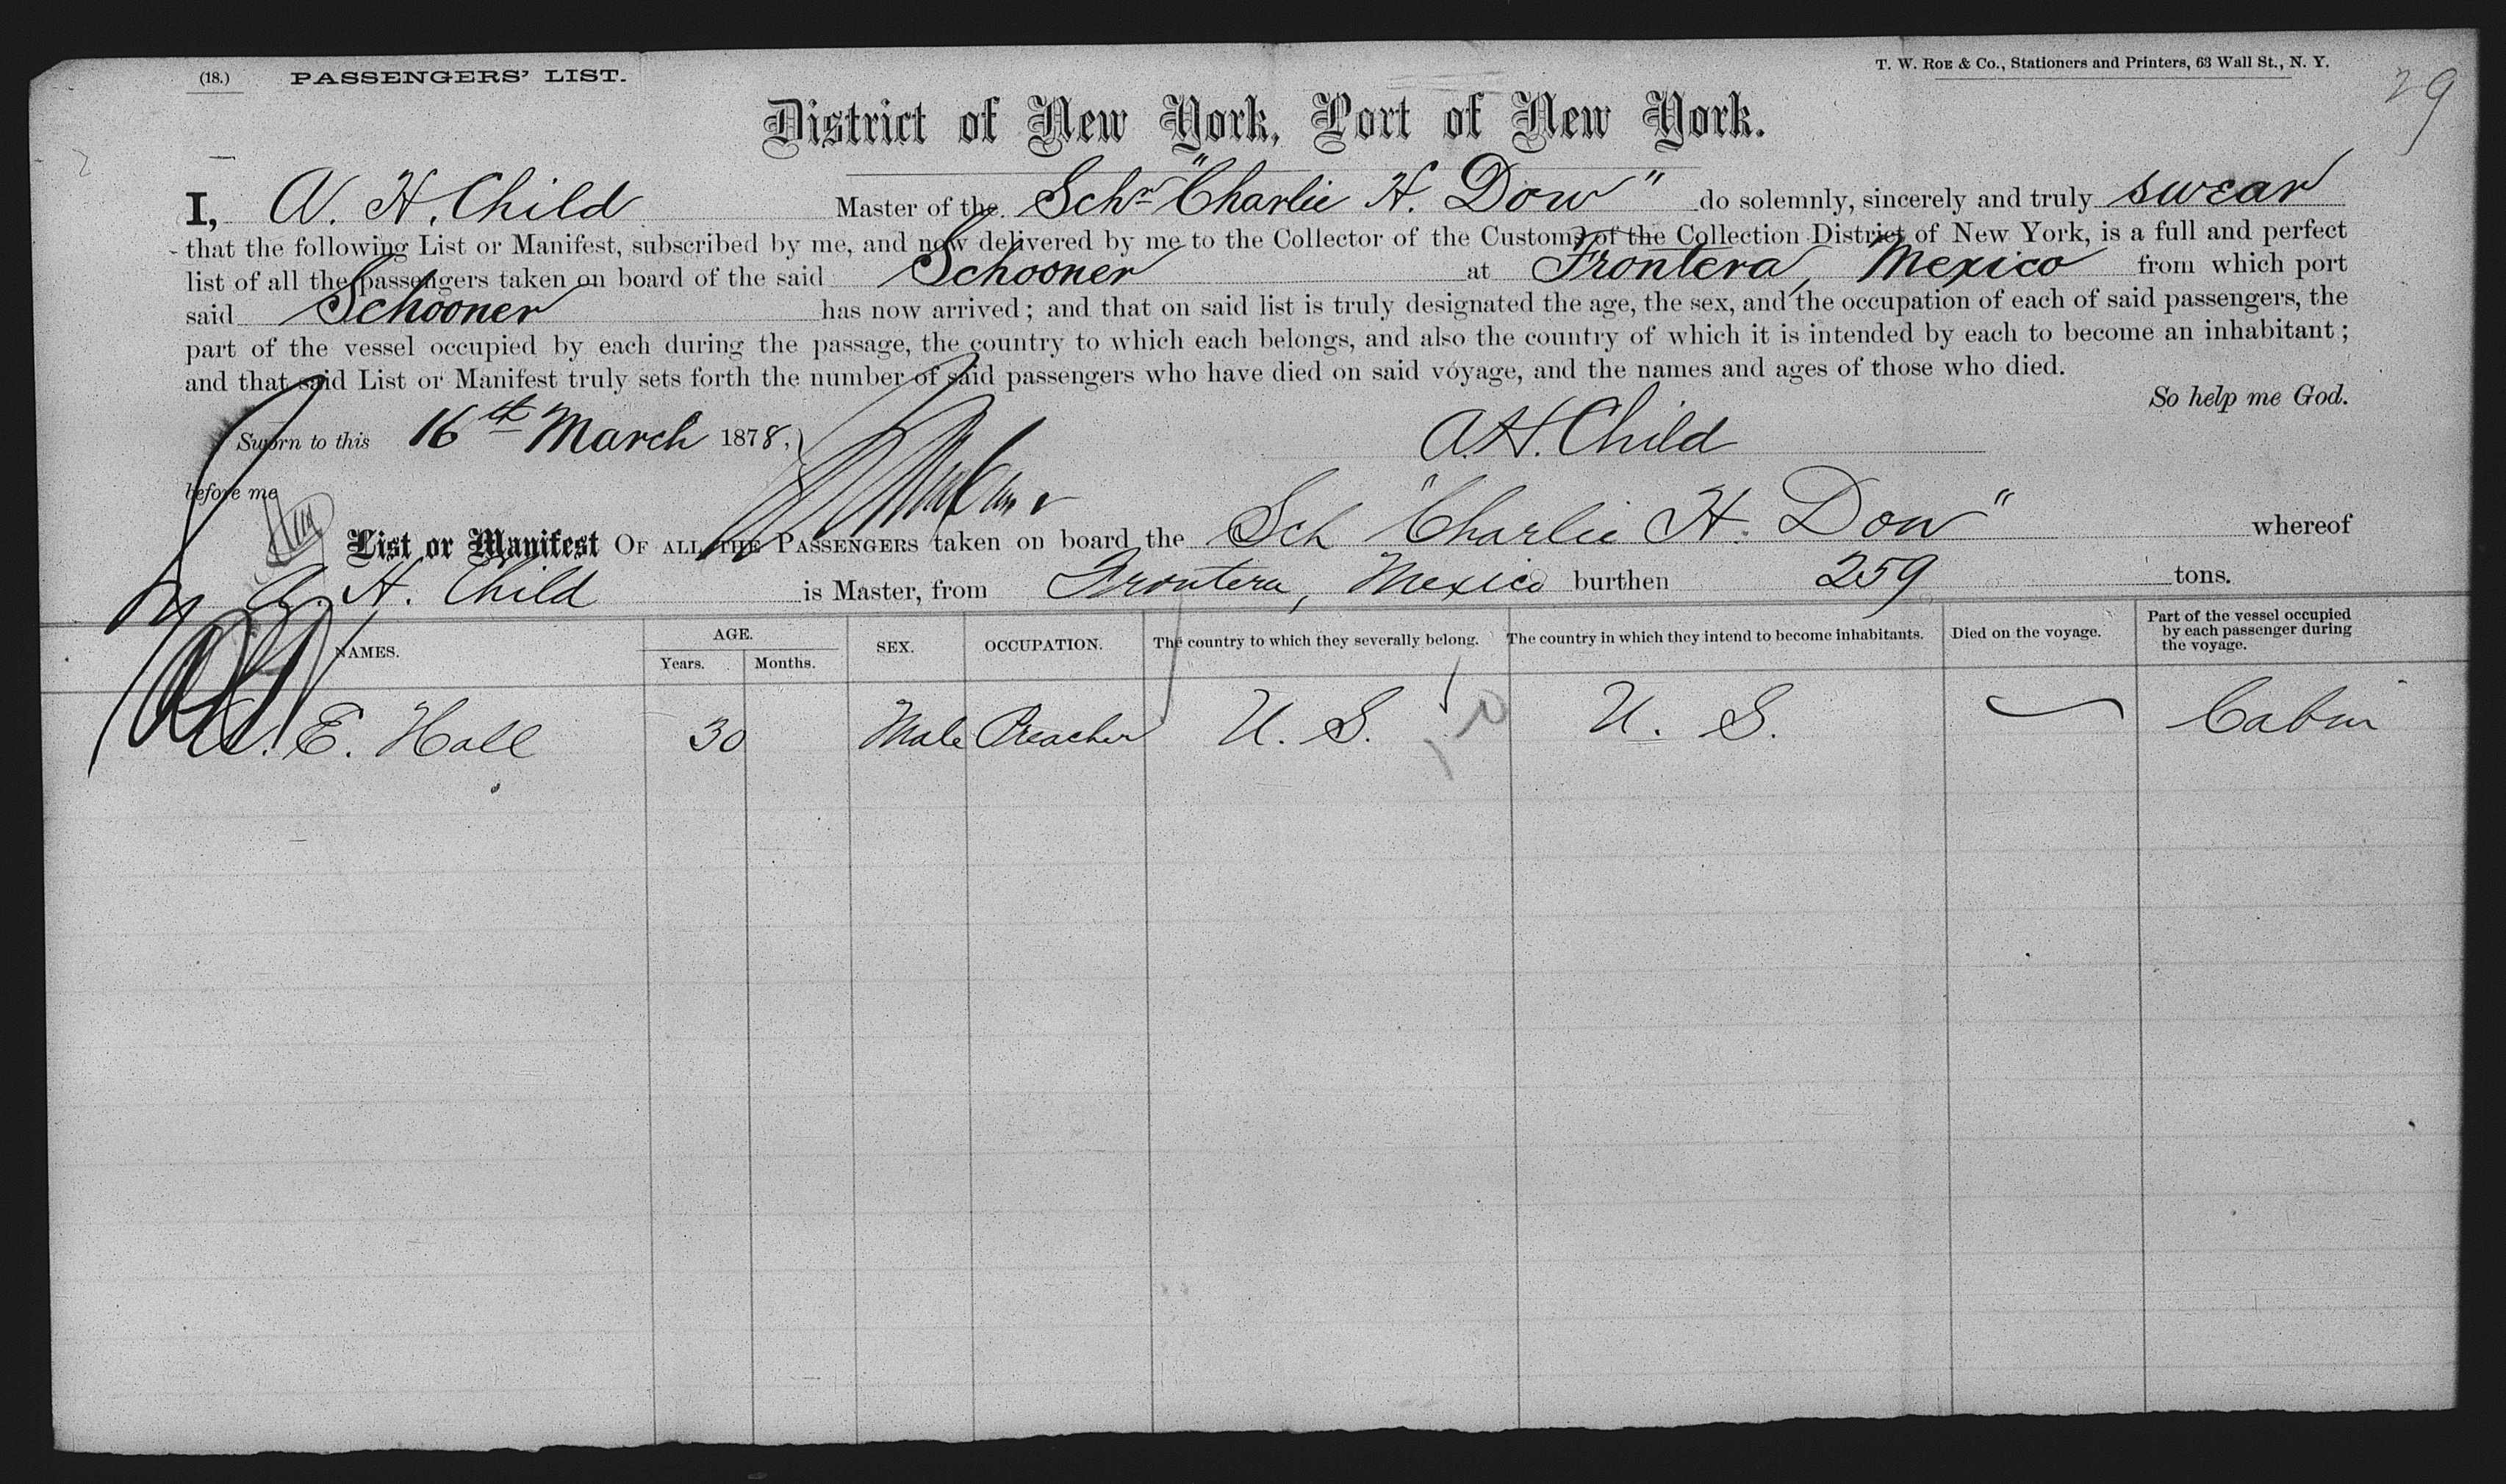 (18.) PASSENGERS' LIST.
T. W. ROE & Co., Stationers and Printers, 63 Wall St., N. Y.
29
District of New York, Port of New York.
I, A. H. Child Master of the Schr "Charlie H. Dow" do solemnly, sincerely and truly swear
that the following List or Manifest, subscribed by me, and now delivered by me to the Collector of the Customs of the Collection District of New York, is a full and perfect
list of all the passengers taken on board of the said Schooner at Frontera, Mexico from which port
said Schooner has now arrived; and that on said list is truly designated the age, the sex, and the occupation of each of said passengers, the
part of the vessel occupied by each during the passage, the country to which each belongs, and also the country of which it is intended by each to become an inhabitant;
and that said List or Manifest truly sets forth the number of said passengers who have died on said voyage, and the names and ages of those who died.
So help me God.
Sworn to this 16th March 1878,
A. H. Child
before me
List or Manifest OF ALL THE PASSENGERS taken on board the Sch "Charlie H. Dow" whereof
A. H. Child is Master, from Frontera, Mexico burthen 259 tons.
NAMES. AGE. Years. Months. SEX. OCCUPATION. The country to which they severally belong. The country in which they intend to become inhabitants. Died on the voyage. Part of the vessel occupied by each passenger during the voyage.
E. Hall 30 Male Preacher U. S. U. S. Cabin